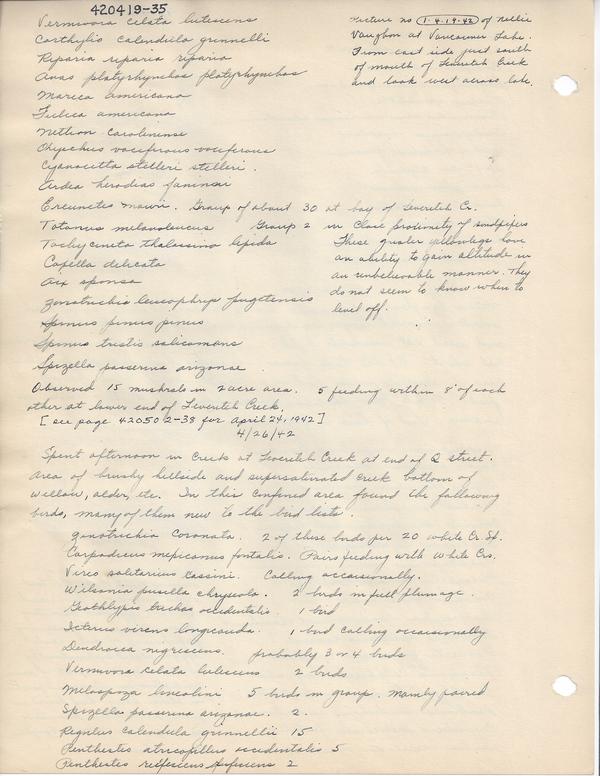 420419-35
Vermivora celata lutescens
Corthylio calendula grinnelli
Riparia riparia riparia
Anas platyrhynchos platyrhynchos
Mareca americana
Fulica americana
Nettion carolinense
Oxyechus vociferous vociferous
Cyanocitta stelleri stelleri.
Ardea herodias fannini
Picture no 1·4·19·42 of Nellie
Vaughn at Vancouver Lake.
From east side just south
of mouth of Leveritch Creek
and look west across lake.
Ereunetes mauri. Group of about 30 at bay of Leveritch Cr.
Totanus melanoleucus Group 2 in close proximity of sandpipers
Tachycineta thalassina lepida
Capella delicata
Aix sponsa
Zonotrichia leucophrys pugetensis
Spinus pinus pinus
Spinus tristis salicamans
Spizella passerina arizonae
These greater yellowlegs have
an ability to gain altitude in
an unbelievable manner. They
do not seem to know when to
level off.
Observed 15 muskrats in 2 acre area. 5 feeding within 8' of each
other at lower end of Leveritch Creek.
[see page 420502-38 for April 24, 1942]
4/26/42
Spent afternoon in Creek at Leveritch Creek at end of Q street.
Area of brushy hillside and supersaturated creek bottom of
willow, alder, etc. In this confined area found the following
birds, many of them new to the bird lists.
Zonotrichia coronata. 2 of these birds per 20 white Cr. Sp.
Carpodacus mexicanus fontalis. Pairs feeding with White Crs.
Vireo solitarius cassini. Calling occasionally.
Wilsonia pusilla chryseola. 2 birds in full plumage.
Geothlypis trichas occidentalis. 1 bird
Icterus virens longicauda. 1 bird calling occasionally
Dendroica nigrescens. probably 3 or 4 birds
Vermivora celata lutescens 2 birds
Melospiza lincolni 5 birds in group. Mainly paired
Spizella passerina arizonae. 2.
Regulus calendula grinnellii 15
Penthestes atricapillus occidentalis 5
Penthestes rufescens rufescens 2